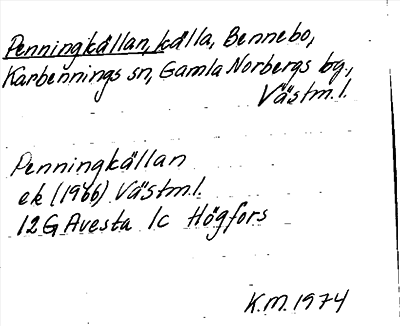 Penningkällan, källa, Bennebo,
Karbennings sn, Gamla Norbergs bg.,
Västm.l.
Penningkällan
ek (1966) Västm.l.
12G Avesta 1c Högfors
K.M. 1974